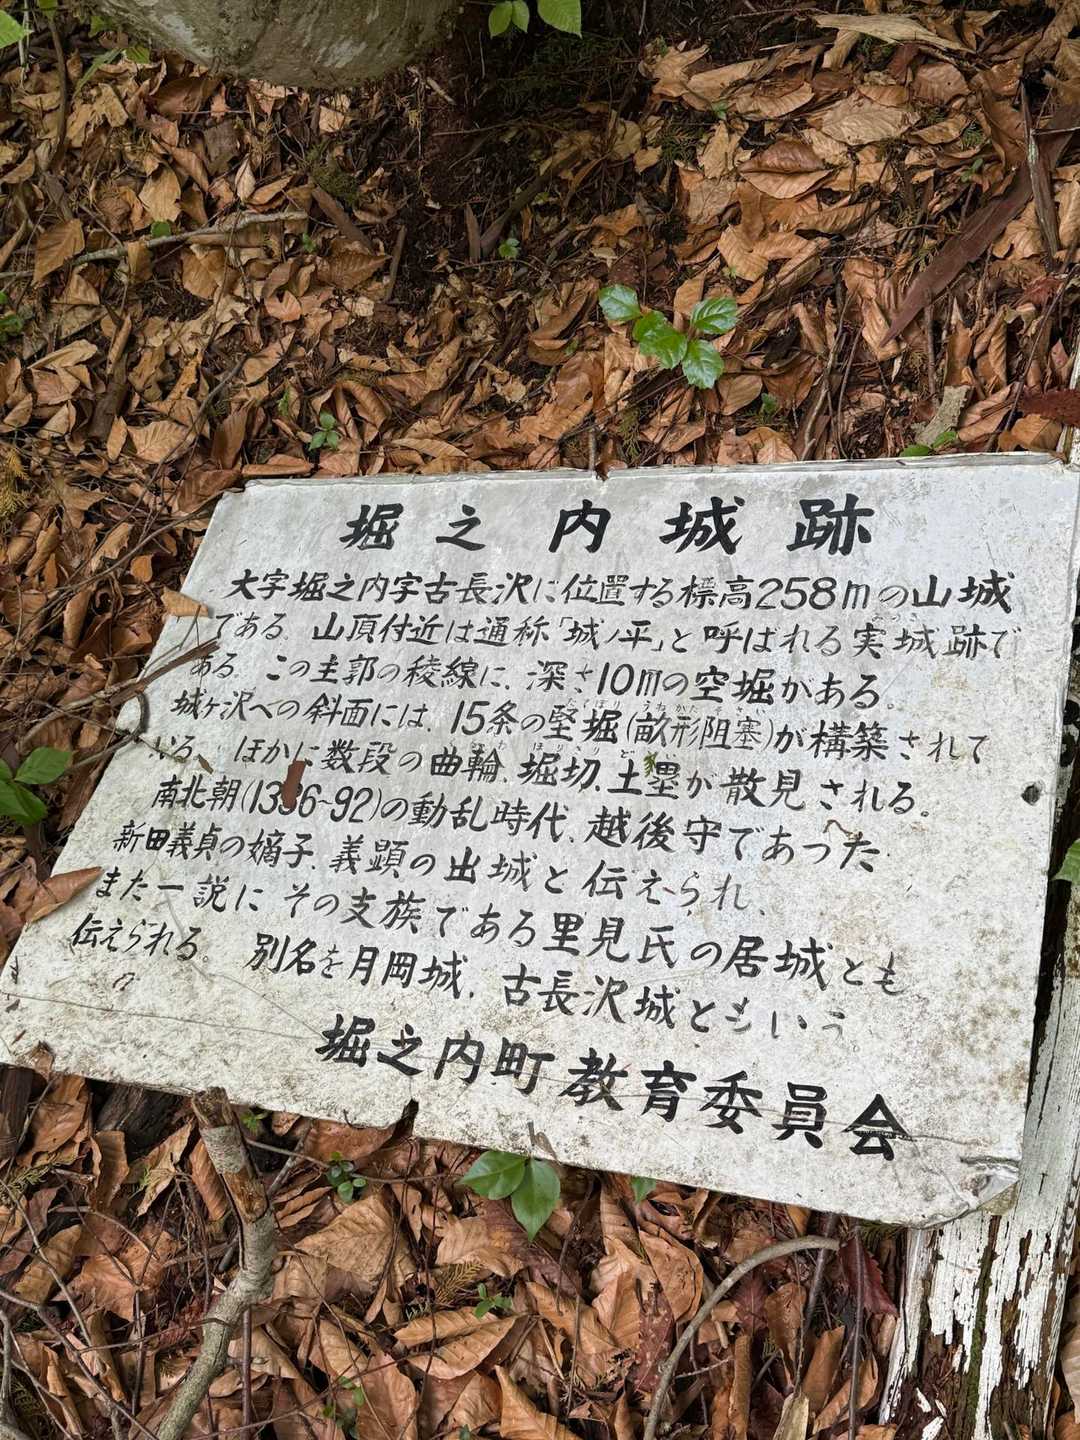 堀之内城跡
大字堀之内字古長沢に位置する標高258mの山城
である。山頂付近は通称「城ノ平」と呼ばれる実城跡で
ある。この主郭の稜線に、深さ10mの空堀がある。
城ヶ沢への斜面には、15条の竪堀(畝形阻塞)が構築されて
いる。ほかに数段の曲輪、堀切、土塁が散見される。
南北朝(1336~92)の動乱時代、越後守であった
新田義貞の嫡子、義顕の出城と伝えられ、
また一説にその支族である里見氏の居城とも
伝えられる。別名を月岡城、古長沢城ともいう。
堀之内町教育委員会